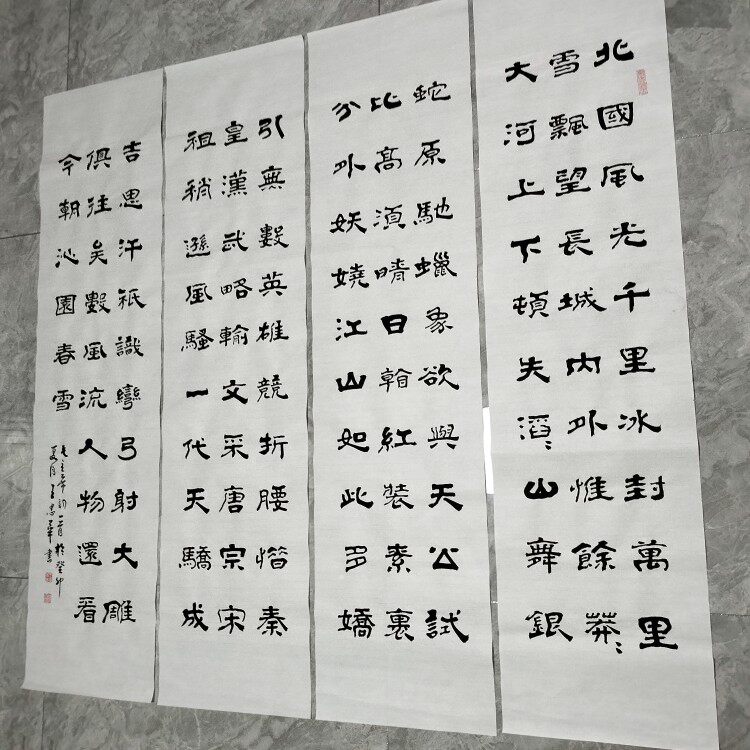 北國風光千里冰封萬里
雪飄望長城内外惟餘莽〻
大河上下頓失滔〻山舞銀
蛇原馳蠟象欲與天公試
比髙須晴日看紅裝素裹
分外妖嬈江山如此多嬌
引無數英雄競折腰惜秦
皇漢武略輸文采唐宗宋
祖稍遜風騷一代天驕成
吉思汗祇識彎弓射大雕
俱往矣數風流人物還看
今朝沁園春雪
毛主席詞一首於癸卯
夏月王忠華書